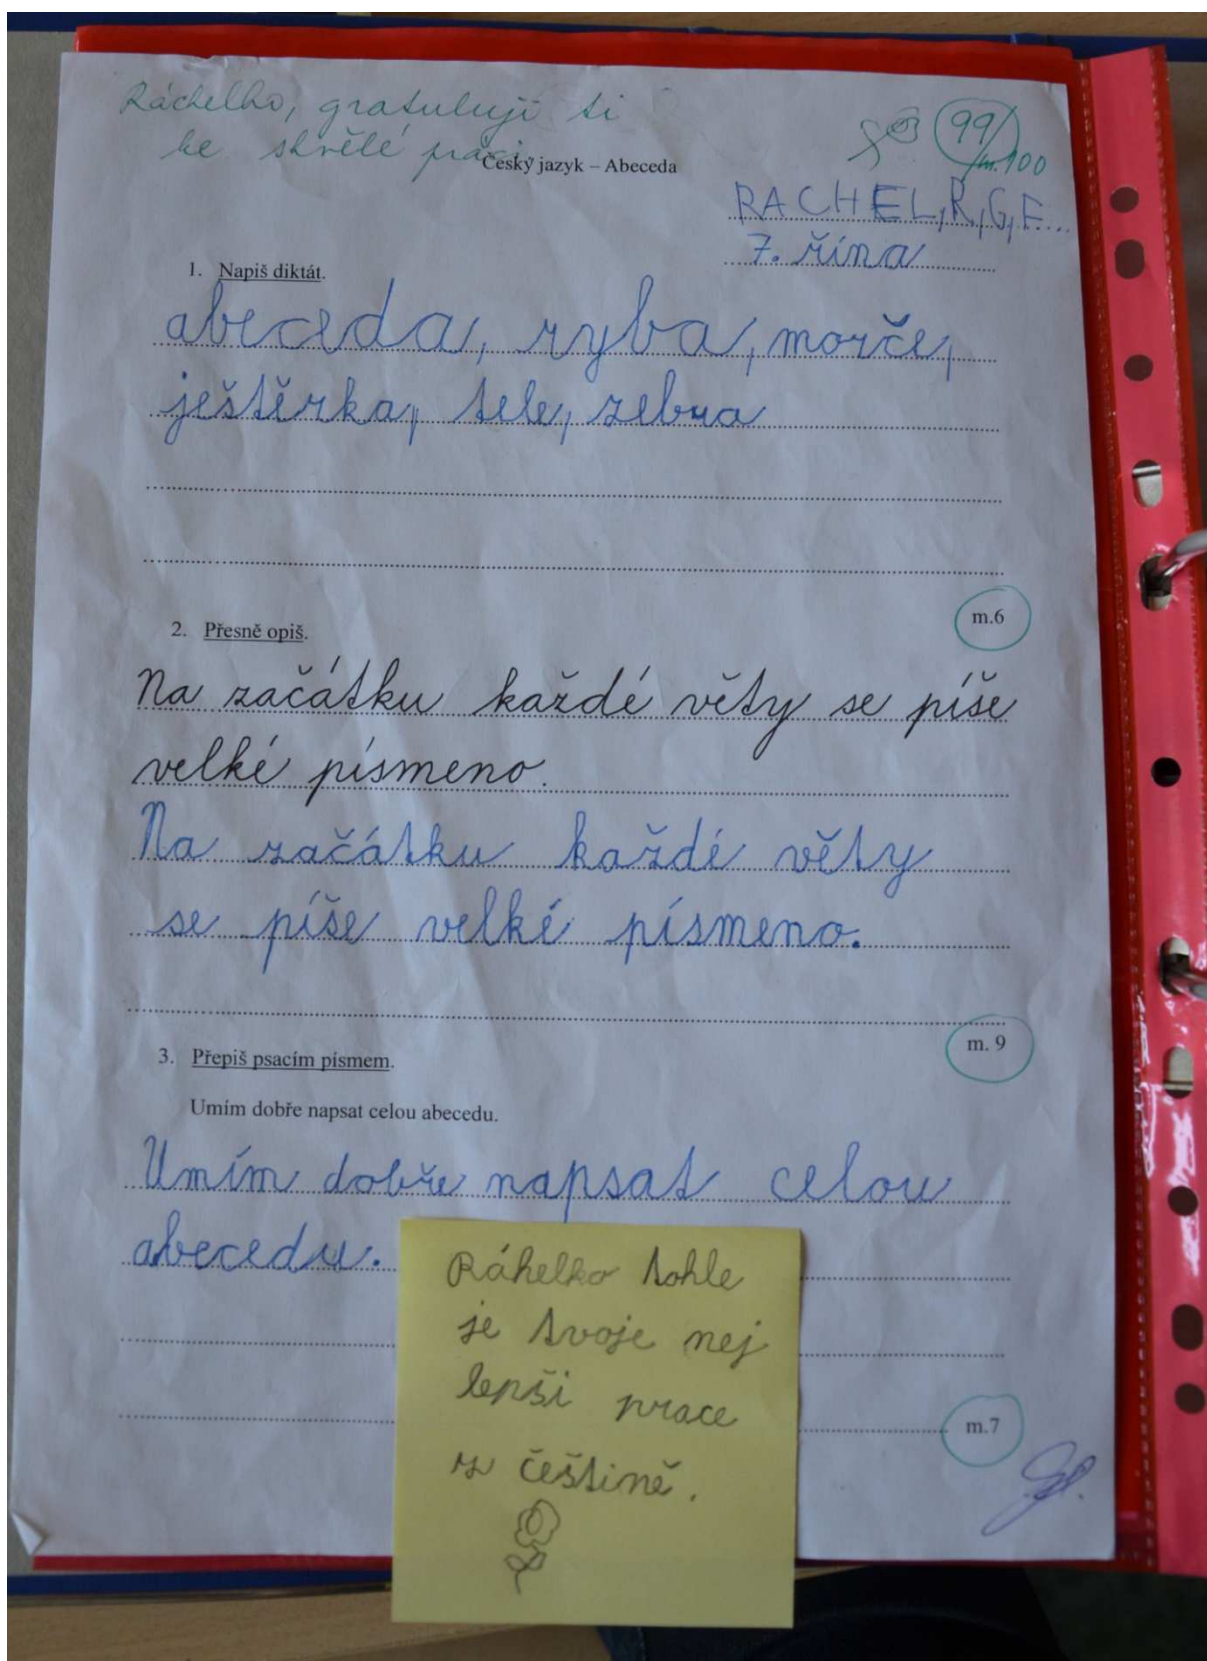 Ráchelko, gratuluji ti
ke skvělé práci.
99/m.100
Český jazyk – Abeceda
RACHEL,R,G,F...
7. řína
1. Napiš diktát.
abeceda, ryba, morče,
ještěrka, tele, zebra
m.6
2. Přesně opiš.
Na začátku každé věty se píše
velké písmeno.
Na začátku každé věty
se píše velké písmeno.
m. 9
3. Přepiš psacím písmem.
Umím dobře napsat celou abecedu.
Umím dobře napsat celou
abecedu.
Ráhelko tohle
je tvoje nej
lepši prace
v češtině.
m.7